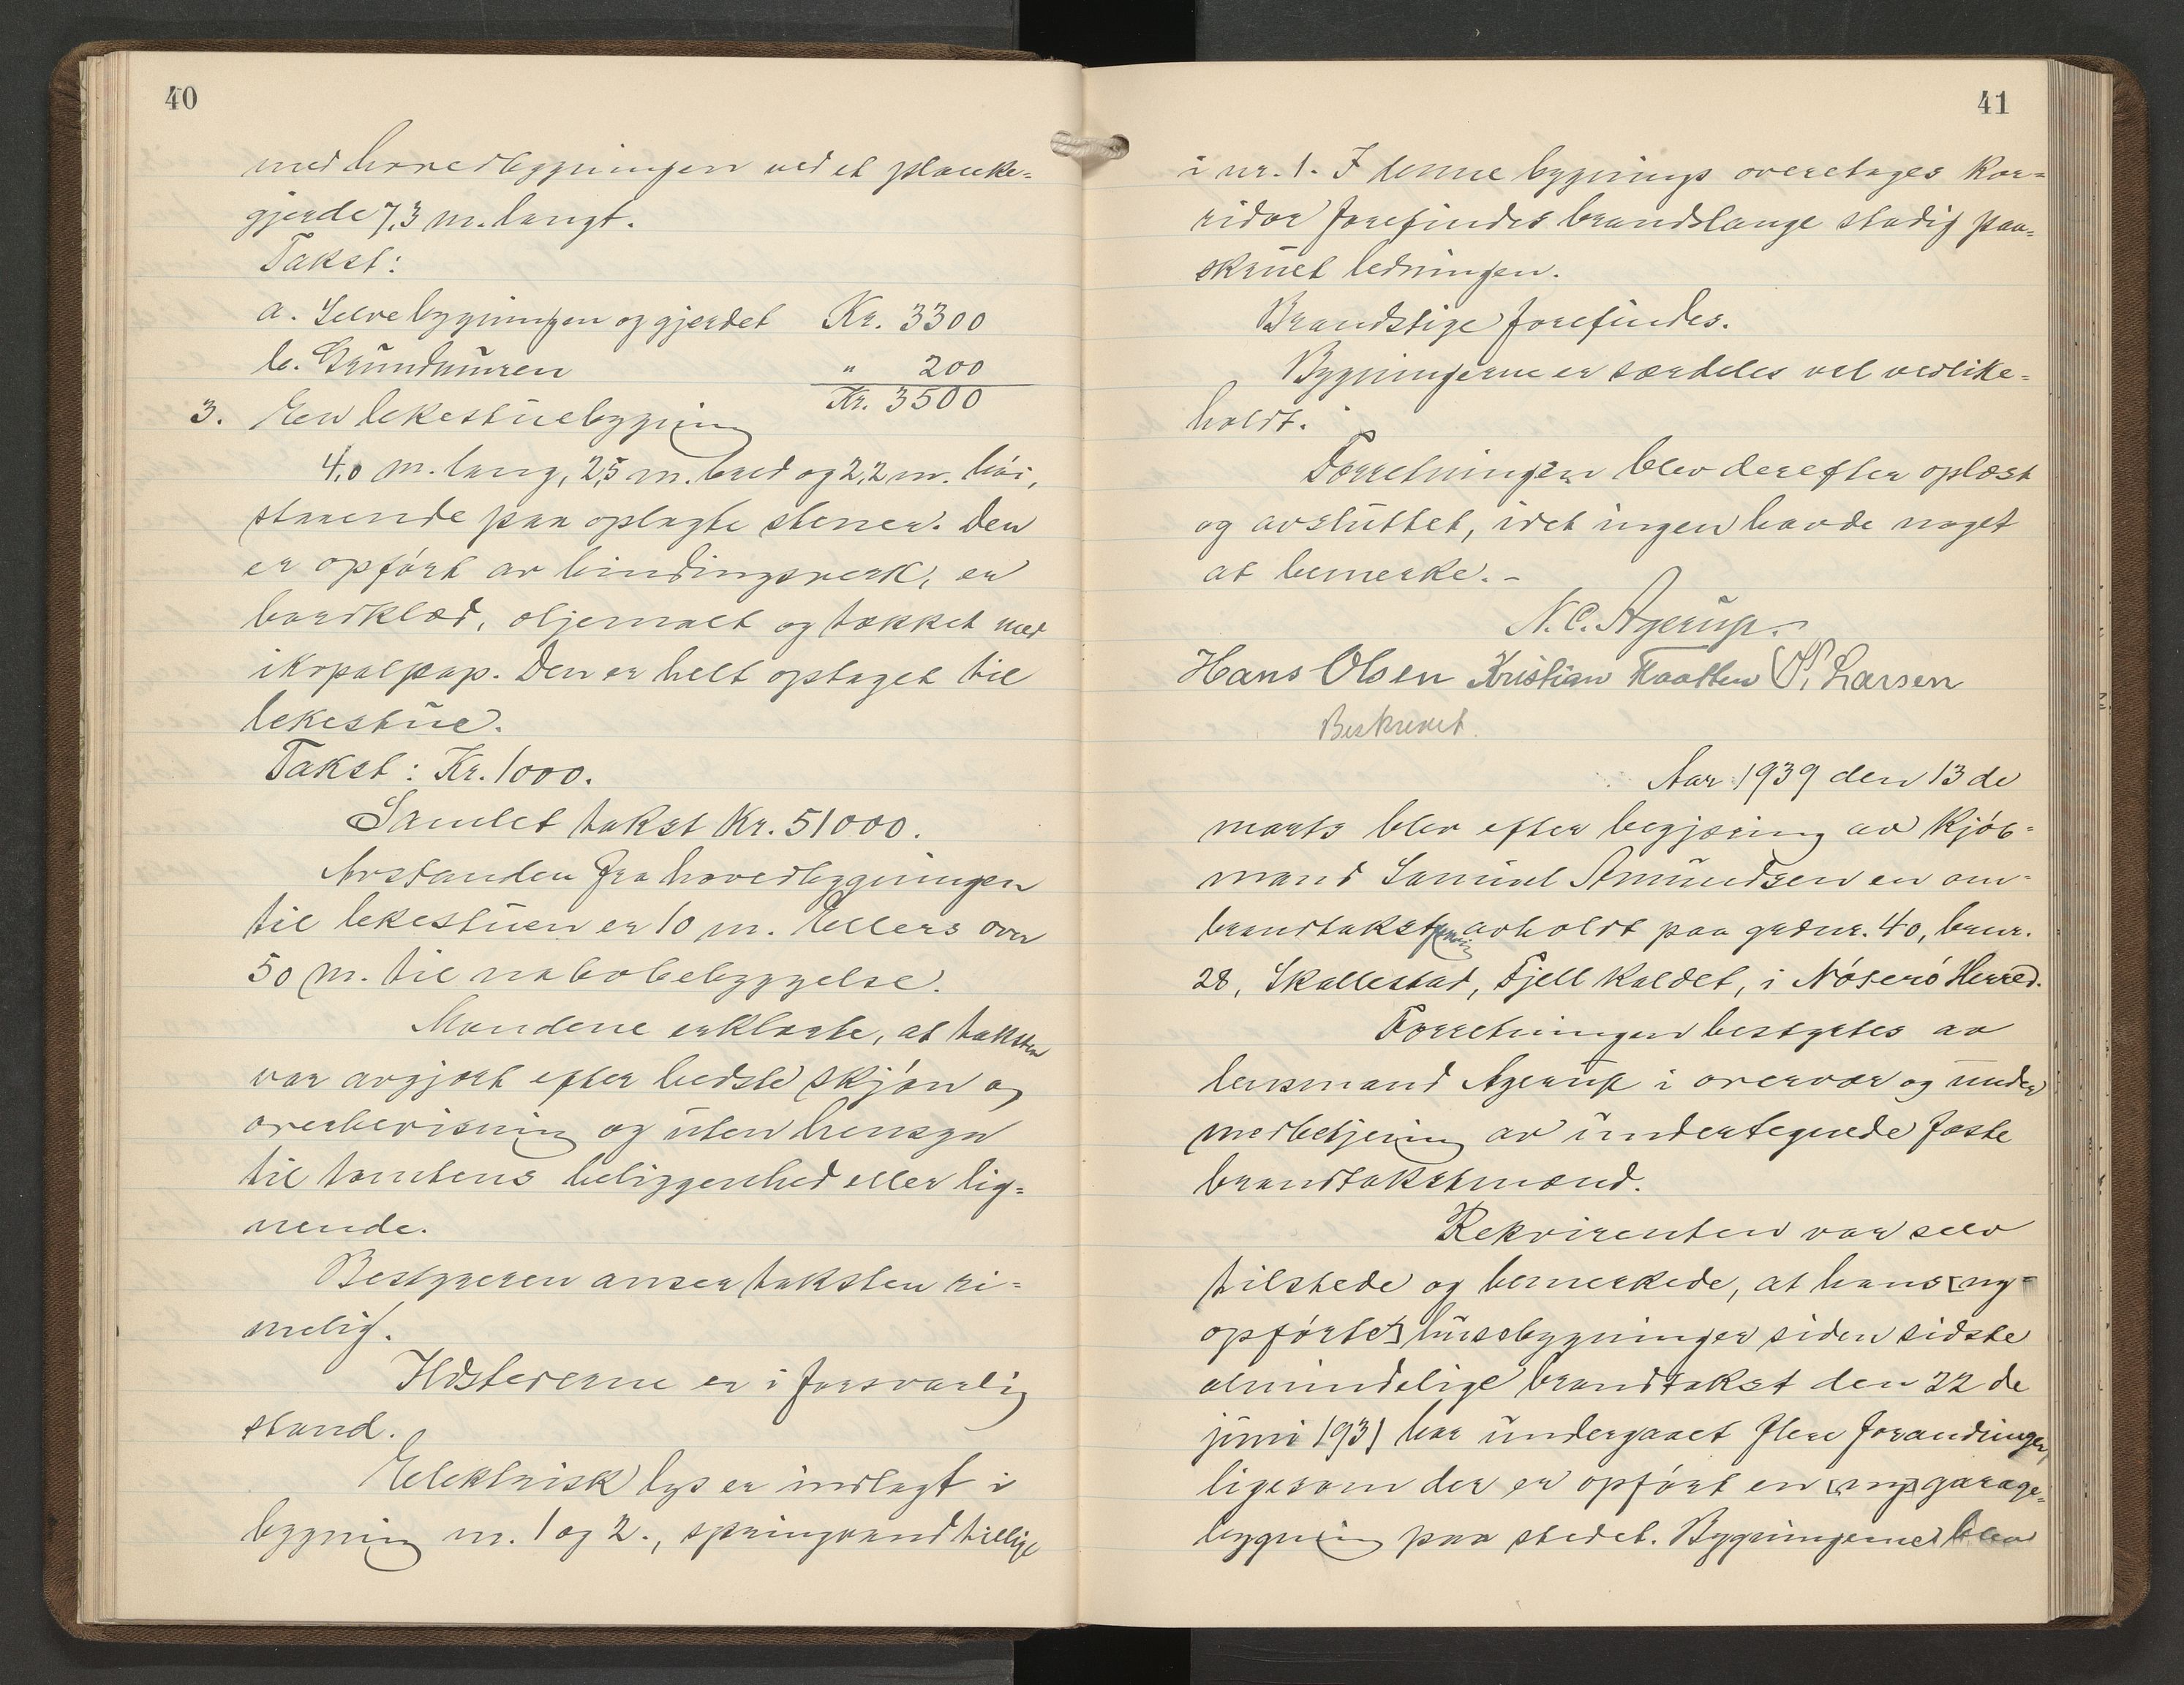 40
med hovedbygningen ved et planke-
gjerde 7,3 m. langt.
Takst:
a. Selve bygningen og gjerdet Kr. 3300
b. Grundmuren " 200
Kr. 3500
3. En lekestuebygning
4,0 m. lang, 2,5 m. bred og 2,2 m. høi,
staaende paa oplagte stener. Den
er opført av bindingsverk, er
bordklæd, oljemalt og tækket med
ikopalpap. Den er helt optaget til
lekestue.
Takst: Kr. 1000.
Samlet takst Kr. 51000.
Avstanden fra hovedbygningen
til lekestuen er 10 m. Ellers over
50 m. til nabobebyggelse.
Mændene erklærte, at taksten
var avgjort efter bedste skjøn og
overbevisning og uten hensyn
til tomtens beliggenhed eller lig-
nende.
Bestyreren anser taksten ri-
melig.
Ildstederne er i forsvarlig
stand.
Elektrisk lys er indlagt i
bygning nr. 1 og 2., springvand tillige
41
i nr. 1. I denne bygnings overetages kor-
ridor forefindes brandslange stadig paa-
skruet ledningen.
Brandstige forefindes.
Bygningerne er særdeles vel vedlike-
holdt.
Forretningen blev derefter oplæst
og avsluttet, idet ingen havde noget
at bemerke. -
N. C. Agerup.
Hans Olsen Kristian Haatten P. Larsen
Beskrevet.
Aar 1939 den 13 de
marts blev efter begjæring av kjøb-
mand Samuel Amundsen en om-
brandtakst avholdt paa grdnr. 40, brnr.
28, Skallestad, Fjell kaldet, i Nøterø Herred.
Forretningen bestyrtes av
lensmand Agerup i overvær og under
medbetjening av undertegnede faste
brandtakstmænd.
Rekvirenten var selv
tilstede og bemerkede, at hans [ny-
opførte] husebygninger siden sidste
almindelige brandtakst den 22 de
juni 1931 har undergaaet flere forandringer,
ligesom der er opført en [ny] garage-
bygning paa stedet. Bygningerne blev